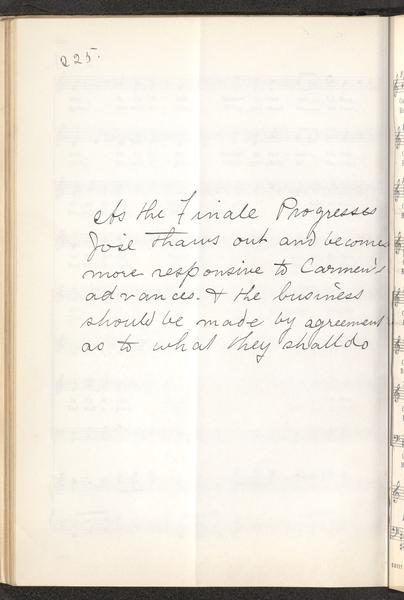 225.
As the Finale Progresses
José Thaws out and becomes
more responsive to Carmen's
advances. & the business
should be made by agreement
as to what they shall do